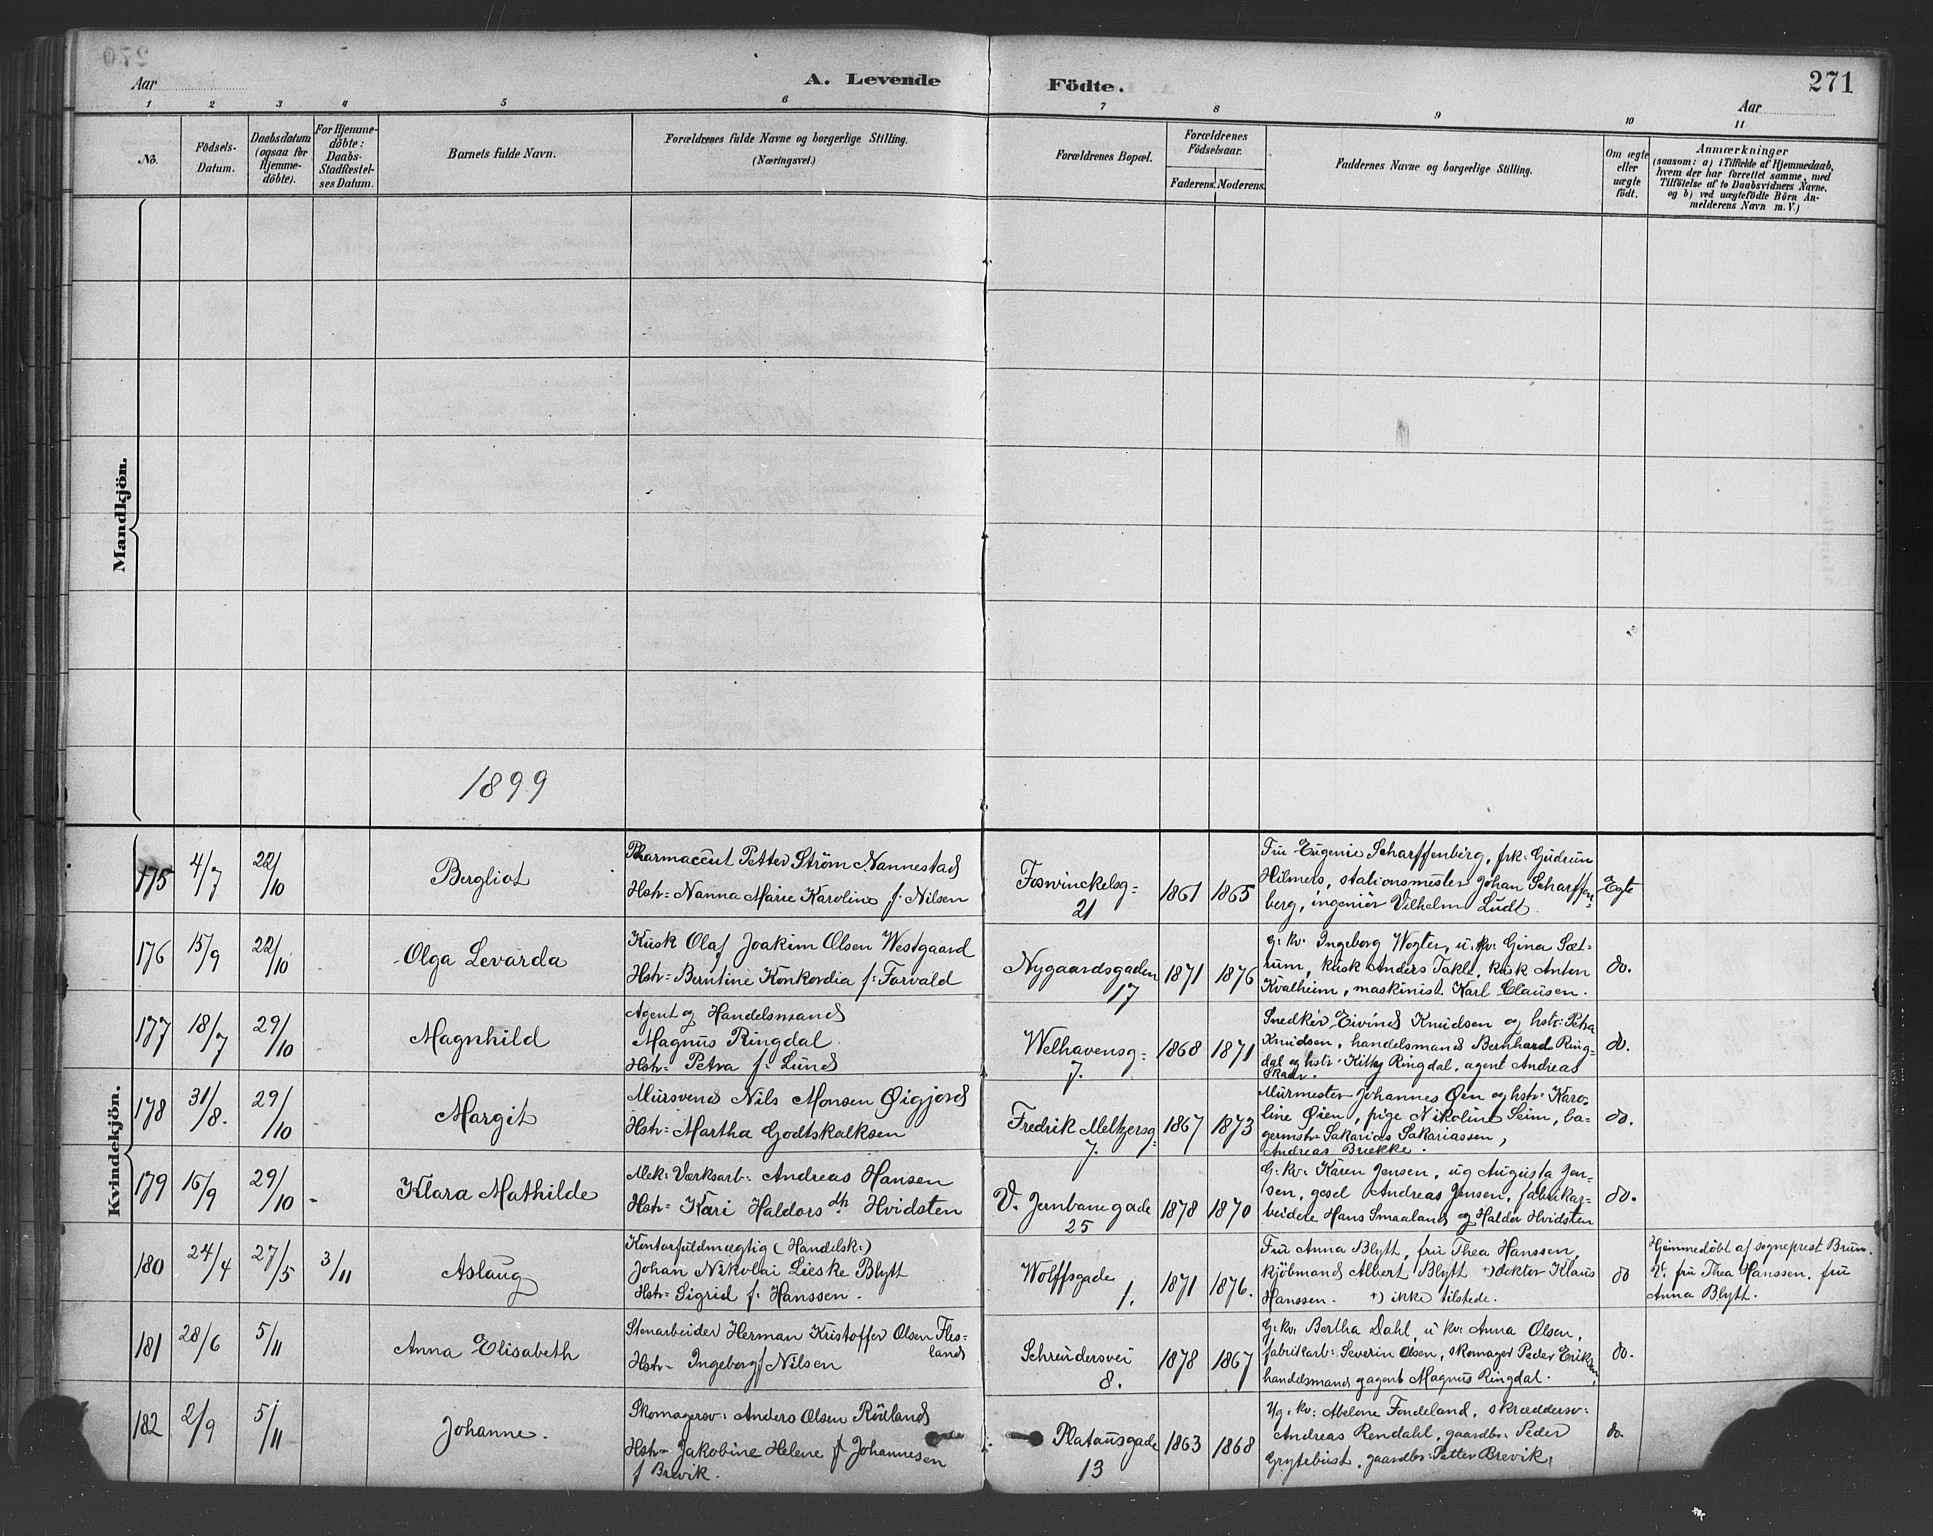 270
271
Aar
A. Levende
Födte.
Aar
1 2 3 4 5 6 7 8 9 10 11
No.
Födsels-
Datum.
Daabsdatum
(ogsaa for
Hjemme-
döbte).
For Hjemme-
döbte:
Daabs-
Stadfæstel-
ses Datum.
Barnets fulde Navn.
Forældrenes fulde Navne og borgerlige Stilling.
(Næringsvei.)
Forældrenes Bopæl.
Forældrenes
Födselsaar.
Faderens. Moderens.
Faddernes Navne og borgerlige Stilling.
Om ægte
eller
uægte
födt.
Anmærkninger
(saasom: a) i Tilfælde af Hjemmedaab,
hvem der har forrettet samme, med
Tilföielse af to Daabsvidners Navne,
og b) ved uægtefödte Börn An-
melderens Navn m.V.)
Mandkjön.
1899
Kvindekjön.
175 4/7 22/10
Bergliot
Pharmaceut Petter Ström Nannestad
Hstr: Nanna Marie Karoline f: Nilsen
Foswinckelsg:
21
1861 1865
Fru Eugenie Scharffenberg, frk: Gudrun
Hilmers, stationsmester Johan Scharffen-
berg, ingeniör Vilhelm Ludt.
Egte
176 15/9 22/10
Olga Levarda
Kusk Olaf Joakim Olsen Westgaard
Hstr: Berntine Konkordia f: Farvald
Nygaardsgaden
17
1871 1876
g: kv: Ingeborg Wogter, u: kv: Gina Sæt-
rum, kusk Anders Takle, kusk Anton
Kvalheim, maskinist Karl Clausen.
do.
177 18/7 29/10
Magnhild
Agent og Handelsmand
Magnus Ringdal.
Hstr: Petra f: Lund
Welhavensg:
7.
1868 1871
Snedker Eivind Knudsen og hstr: Petra
Knudsen, handelsmand Bernhard Ring-
dal og hstr: Kitty Ringdal, agent Andreas
Skaar.
do.
178 31/8. 29/10
Margit
Mursvend Nils Monsen Øigjord
Hstr: Martha Godtskalksen
Fredrik Meltzersg:
7.
1867 1873
Murmester Johannes Øen og hstr: Karo-
line Øien, pige Nikoline Seim, ba-
germstr: Sakarias Sakariassen,
Andreas Brække.
do.
179 15/9 29/10 -
Klara Mathilde
Mek: Værksarb: Andreas Hansen
Hstr: Kari Haldorsdtr Hvidsten
V. Jernbanegade
25
1878 1870
G: kv: Karen Jensen, ug Augusta Jen-
sen, gesel Andreas Jensen, fabrikar-
beidere Hans Smaaland og Halder Hvidsten
do.
180 24/4 27/5 3/11
Aslaug
Kontorfuldmægtig (Handelsk:)
Johan Nikolai Lieske Blytt
Hstr: Sigrid f: Hanssen.
Wolffsgade
1.
1871 1876.
Fru Anna Blytt, fru Thea Hanssen,
kjöbmand Albert Blytt +) doktor Klaus
Hanssen. +) ikke tilstede.
do
Hjemmedöbt af sogneprest Brun.
V. fru Thea Hanssen, fru
Anna Blytt.
181 28/6 5/11
Anna Elisabeth
Stenarbeider Herman Kristoffer Olsen Fles-
land
Hstr: Ingeborg f Nilsen
Schreudersvei
8.
1878 1867
G: kv: Bertha Dahl, u kv: Anna Olsen,
fabrikarb: Severin Olsen, skomager Peder Eriksen,
handelsmand og agent Magnus Ringdal.
do.
182 2/9 5/11
Johanne.
Skomagersv: Anders Olsen Rödland
Hstr: Jakobine Helene f Johannesen
f Brevik.
Platausgade
13
1863 1868
Ug: kv: Abelone Fondeland, skræddersv:
Andreas Rendahl, gaardbr: Peder
Grytebust, gaardbr: Petter Brevik,
do.